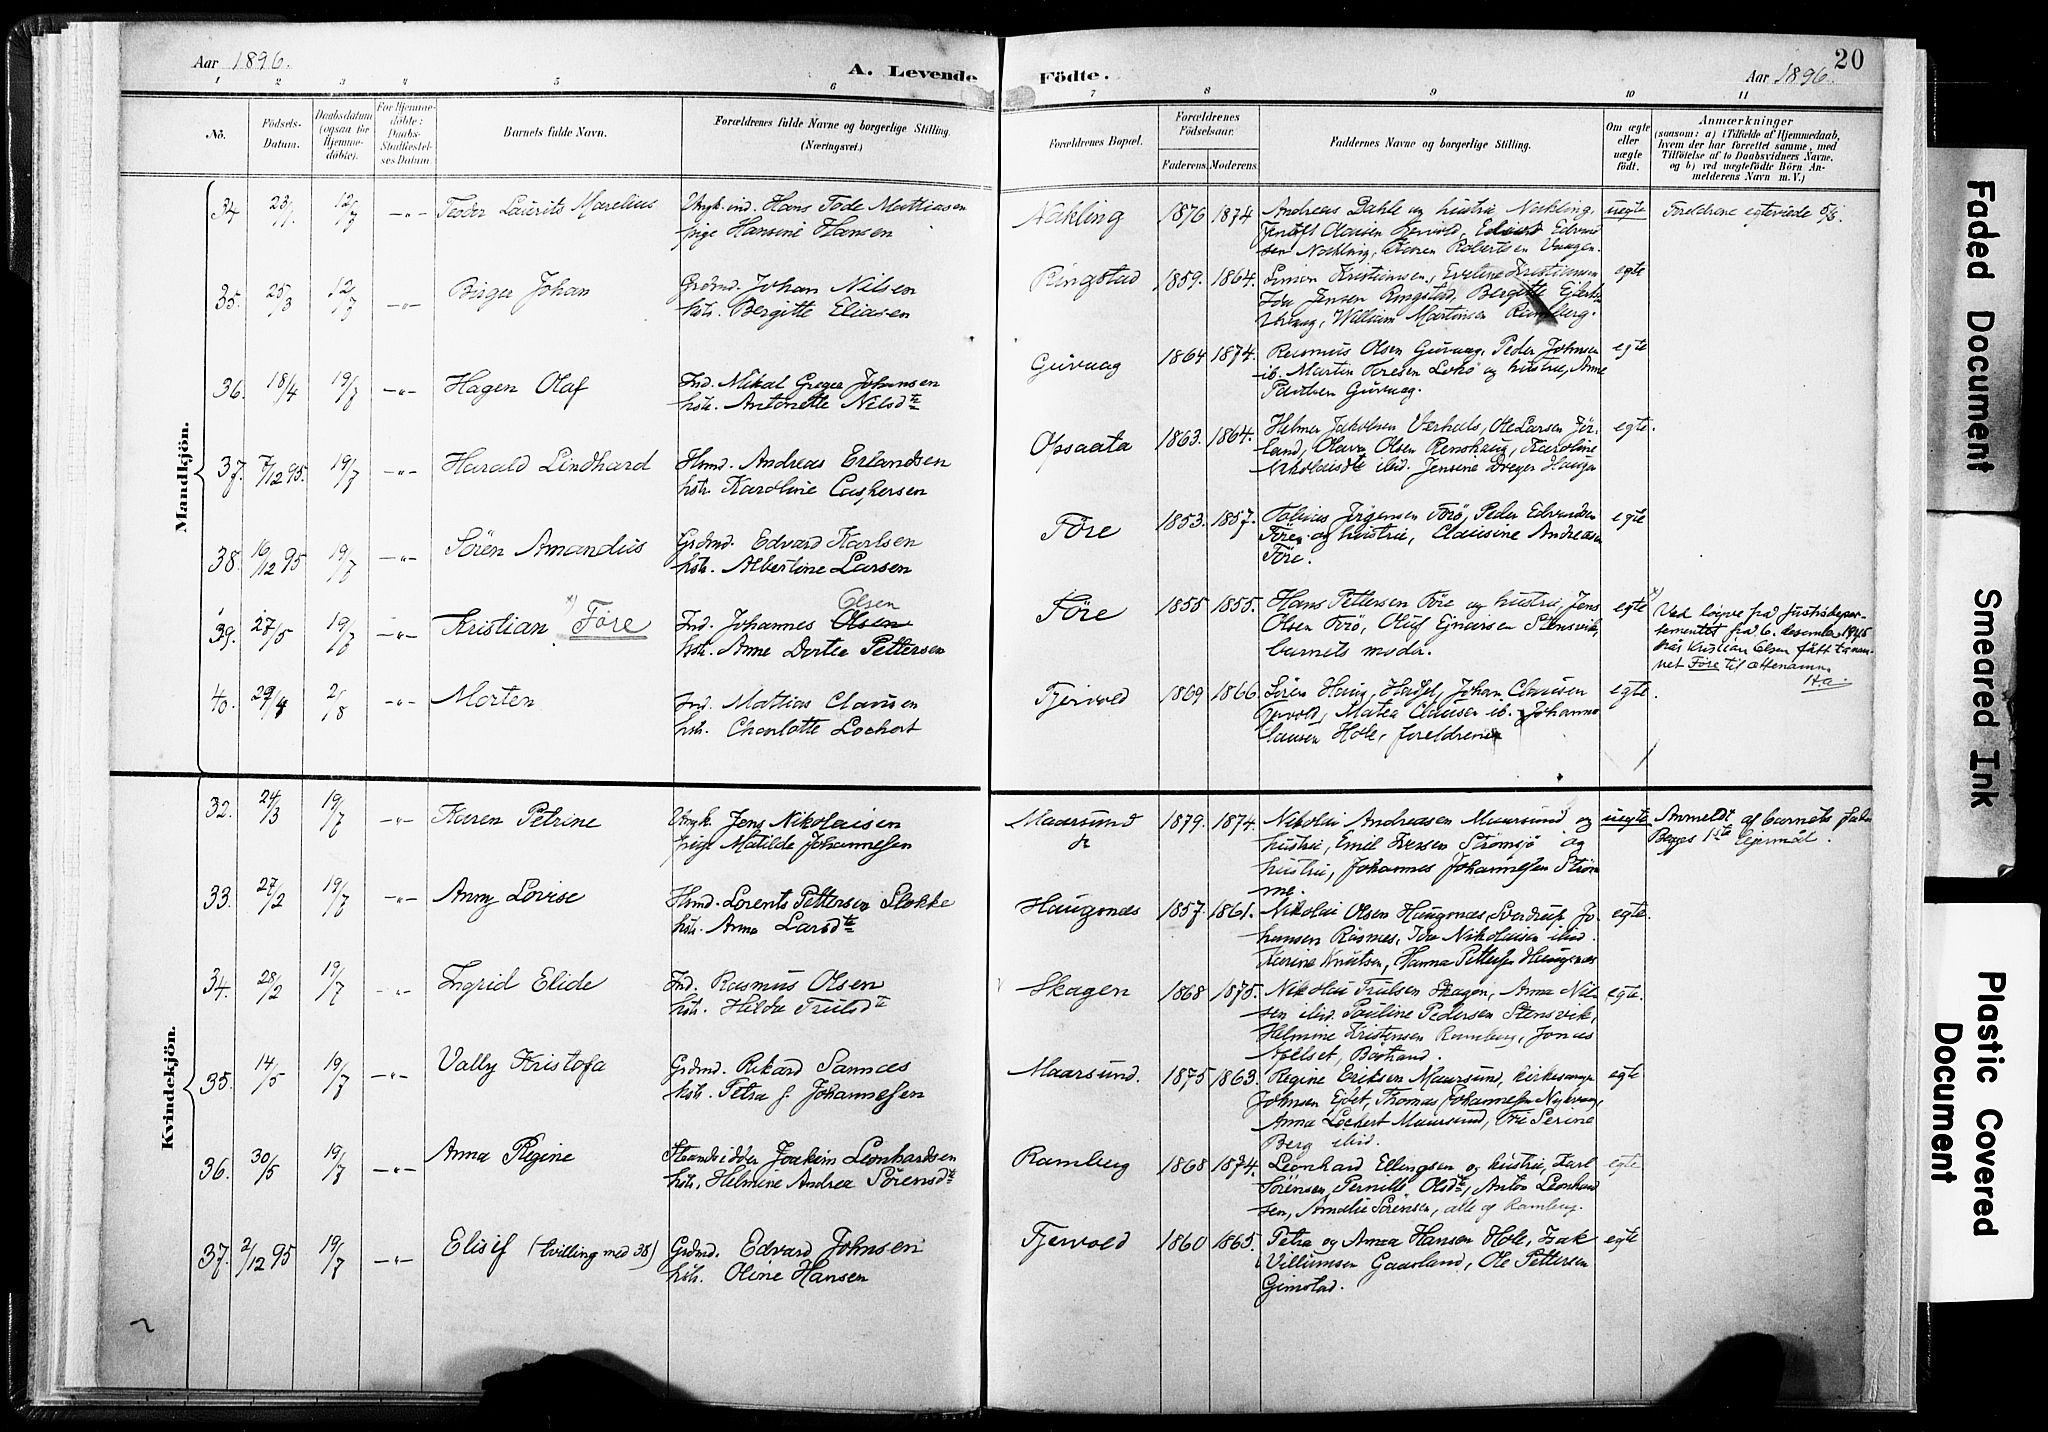 Aar 1896.
A. Levende
Födte.
Aar 1896.
20
1 2 3 4 5 6 7 8 9 10 11
No.
Födsels-Datum.
Daabsdatum (ogsaa for Hjemmedöbte).
For Hjemmedöbte: Daabs-Stadfæstelses Datum.
Barnets fulde Navn.
Forældrenes fulde Navne og borgerlige Stilling.
(Næringsvei.)
Forældrenes Bopæl.
Forældrenes Födselsaar.
Faderens. Moderens.
Faddernes Navne og borgerlige Stilling.
Om ægte eller uægte födt.
Anmærkninger
(saasom: a) i Tilfælde af Hjemmedaab,
hvem der har forrettet samme, med
Tilföielse af to Daabsvidners Navne,
og b) ved uægtefödte Börn An-
melderens Navn m. V.)
Mandkjön.
34 23/1 12/7 –"– Teodor Laurits Marelius
Hans Tode Mathiasen
pige Hansine Hansen
Nakling 1876 1874
Andreas Dahle og hustru Nakling,
Olausen
Nakling, Robertsen Vaagen.
uegte
Foreldrene egteviede 5/8.
35. 25/3 12/7 –"– Birger Johan
Grdmd. Johan Nilsen
hstr. Bergitte Eliasen
Ringstad 1859. 1864.
Simon Kristiansen, Eveline Kristiansen
Jensen Ringstad, Bergitte
William Martinsen Ramberg.
egte
36. 18/4 19/7 –"– Hagen Olaf
Ind. Mikal Greger Johansen
hstr. Antonette Nilsdtr
Guvaag 1864 1874.
Rasmus Olsen Guvaag, Peder Johnsen
ib. Martin Toresen og hustru, Anne
Guvaag.
egte
37. 7/12 95. 19/7 –"– Harald Lindhard
Hmd. Andreas Erlandsen
hstr. Karoline Caspersen
Opsaata 1863. 1864.
Helmer Jakobsen Ole Larsen
Olsen Karoline
Nikolaisdtr ibid. Jensine Dreyer
egte.
38. 16/12 95 19/7 –"– Sören Amandus
Grdmd. Edvard Karlsen
hstr. Albertine Larsen
Före 1853. 1857.
Tobias Jörgensen Peder Edvardsen
Före og hustru, Clausine Andreasen
Före.
egte
39. 27/5 19/7 –"– Kristian x) Före
Olsen
Ind. Johannes Olsen
hstr. Anne Dortea Pettersen
Före 1855 1855.
Hans Pettersen Före og hustru, Jens
Olsen Oluf Ejnarsen Stensvik,
barnets moder.
egte
x) Ved løyve frå Justisdepar-
tementet frå 6. desember 1945
har Kristian Olsen fått ta nam-
net Före til ættenamn.
H.a.
40. 29/4 2/8 –"– Morten
Ind. Mathias Clausen
hstr. Charlotte Lochert
Fjervold 1869 1866.
Sören Haug, Hadsel, Johan Clausen
Fjervold, Matea Clausen ib. Johanna
Clausen Hole, foreldrene
egte.
Kvindekjön.
32. 24/3 19/7 –"– Karen Petrine
Ungk. Jens Nikolaisen
pige Matilde Johannessen
Maarsund 1879. 1874.
Nikolai Andreasen Maarsund og
hustru, Emil Iversen Strömsjö og
hustru, Johannes Johannessen Ström-
me.
uegte
Anmeldt af barnets fader
Begges 1ste leiermål.
33. 27/2 19/7 –"– Anny Lovise
Hmd. Lorents Pettersen Slokke
hstr. Anna Larsdtr
Haugsnes 1857. 1861.
Nikolai Olsen Haugsnes, Sverdrup Jo-
hansen Rösnes, Ida Nikolaisen ibid.
Karine Knutsen, Hanna Pettersen Haugsnes
egte.
34. 28/2 19/7 –"– Ingrid Elide
Ind. Rasmus Olsen
hstr. Helda Trulsdtr
Skagen 1868 1875.
Nikolai Trulsen Skagen, Anna Nil-
sen ibid. Pauline Pedersen Stensvik,
Helmine Kristensen Ramberg, Jonas
egte.
35. 14/5 19/7 –"– Vally Kristofa
Grdmd. Rikard Sannæs
hstr. Petra J. Johannessen
Maarsund. 1875 1863.
Regine Eriksen Maarsund, kirkesanger
Johnsen Thomas Johannessen
Anna Lochert Maarsund, Serine
Berg ibid.
egte
36. 30/5 19/7 –"– Anna Regine
Strandsidder Joakim Leonhardsen
hstr. Helmine Andrea Sörensdtr
Ramberg 1868 1874.
Leonhard Ellingsen og hustru, Karl
Sörensen, Pernille Olsdtr, Anton Leonhard-
sen, Amalie Sörensen, alle af Ramberg.
egte
37. 2/12 95 19/7 –"– Elisif (tvilling med 38)
Grdmd. Edvard Johnsen
hstr. Oline Hansen
Fjervold 1860 1865.
Petra og Anna Hansen Hole, Isak
Villumsen Gaasland, Ole Pettersen
Gimstad.
egte
Faded Document
Smeared Ink
Plastic Covered
Document